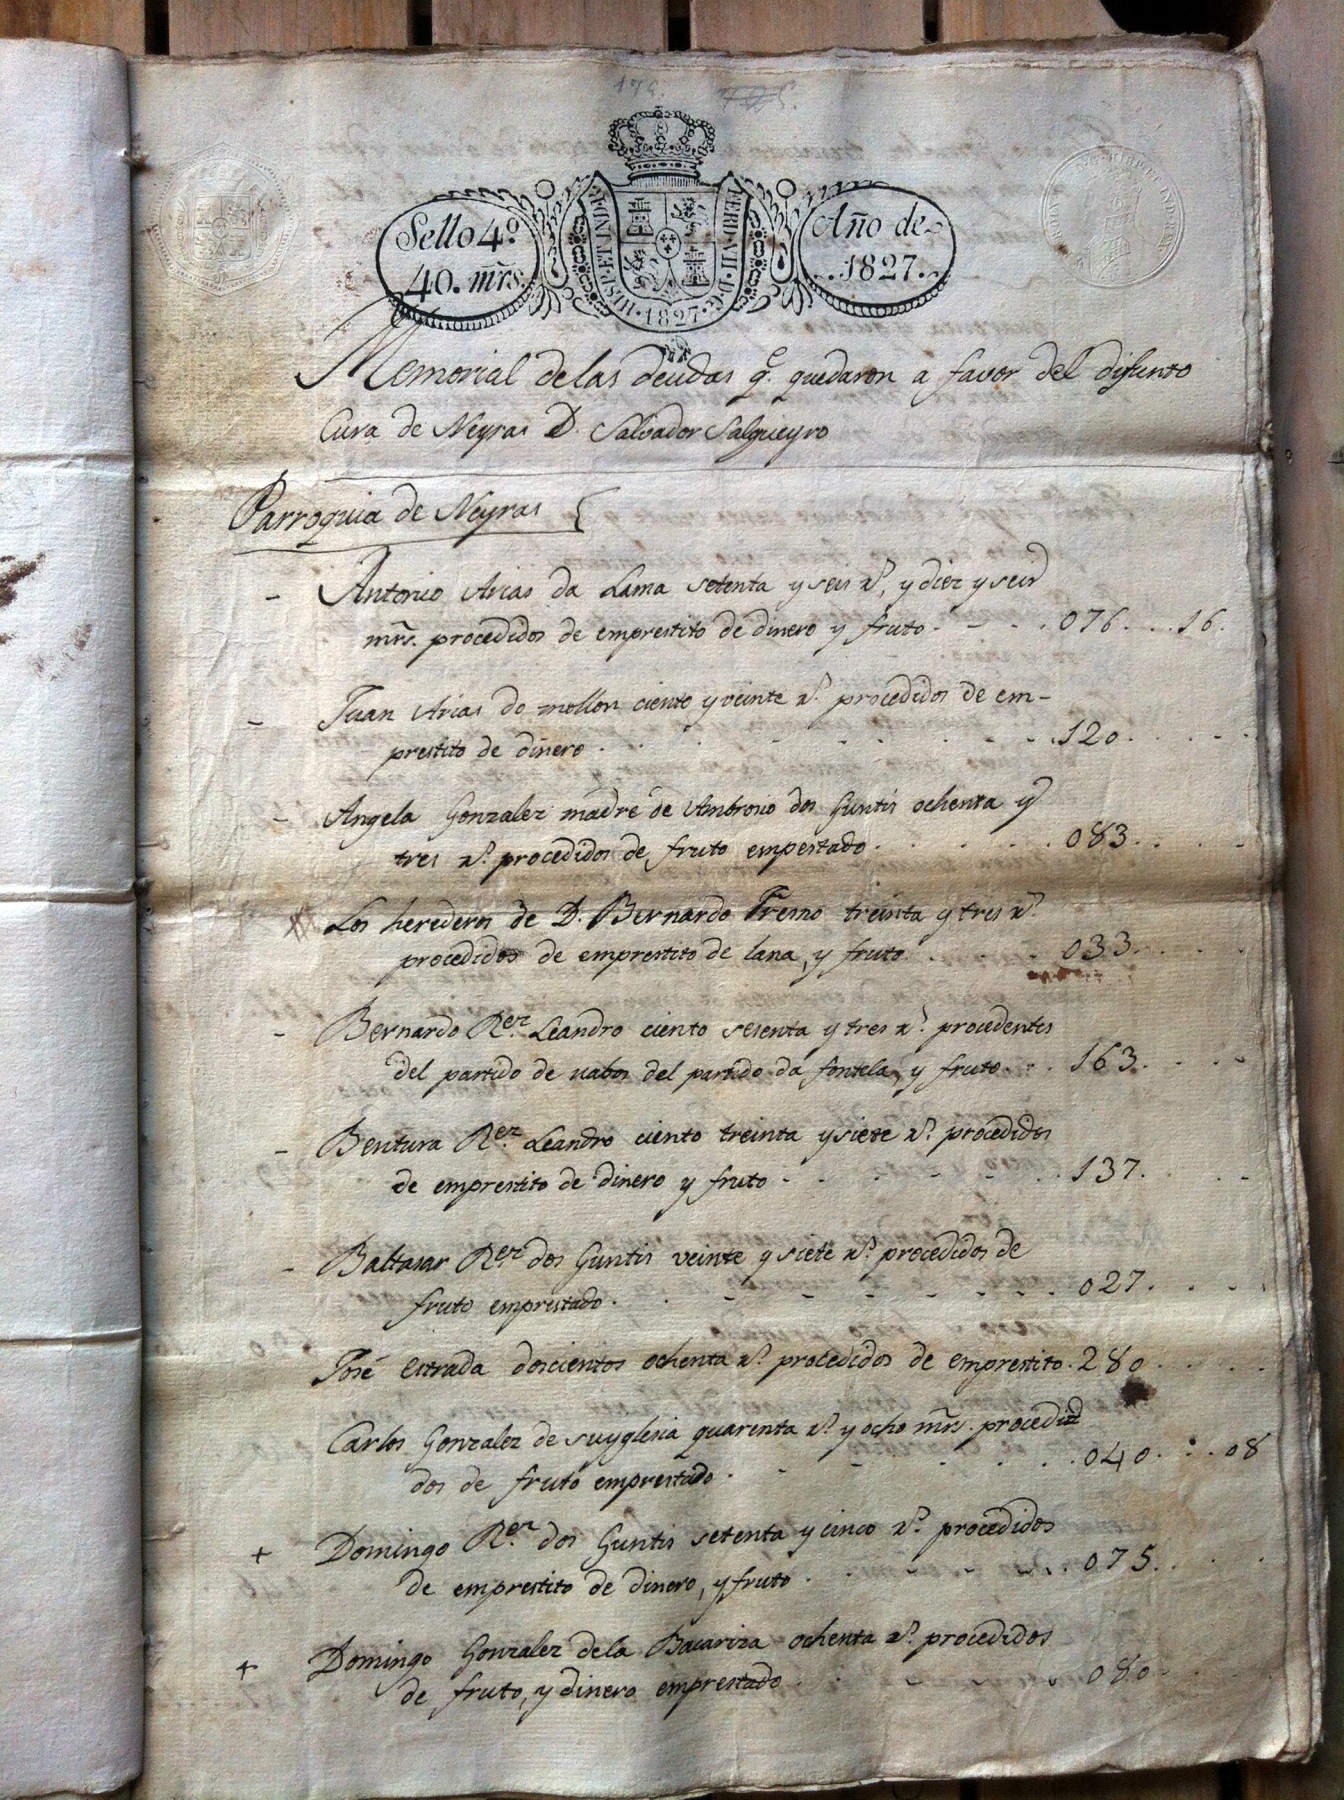 174.
Sello 4.º
40. mr̃s.
HISP. ET IND. R.
FERD. VII. D. G.
·1827·
Año de
1827.
Memorial delas deudas q.e quedaron a favor del difunto
Cura de Neyras D. Salvador Salgueyro
Parroquia de Neyras {
- Antonio Arias da Lama setenta y seis r.s, y diez y seis
mr̃s. procedidos de emprestito de dinero y fruto - - - . 076 . . . 16.
- Juan Arias do mollon ciento y veinte r.s procedidos de em-
prestito de dinero . . . . - - - - - . 120 . . . - -
- Angela Gonzalez madre de Ambrosio dos Guntis ochenta y
tres r.s procedidos de fruto empestado . . . . . . 083 . . . . -
Los herederos de D. Bernardo Fresno treinta y tres r.s
procedidos de emprestito de lana, y fruto . . . . 033 . . . .
- Bernardo R.ez Leandro ciento sesenta y tres r.s procedentes
del partido de nabos del partido da fontela, y fruto . . . 163 . . . -
- Bentura R.ez Leandro ciento treinta y siete r.s procedidos
de emprestito de dinero y fruto - . . - - - . . 137 . . . -
- Baltasar R.ez dos Guntis veinte y siete r.s procedidos de
fruto emprestado . . . - - - - - - . 027 . . . .
José estrada doscientos ochenta r.s procedidos de emprestito . 280 . . . . .
Carlos Gonzalez de suyglesia quarenta r.s y ocho mr̃s. procedi
dos de fruto emprestado . - - . . . . 040 . . . 08
+ Domingo R.ez dos Guntis setenta y cinco r.s procedidos
de emprestito de dinero, y fruto . . - - - . . 075 . . . .
+ Domingo Gonzalez dela Bacariza ochenta r.s procedidos
de fruto, y dinero emprestado . . - - - . 080 . . . .